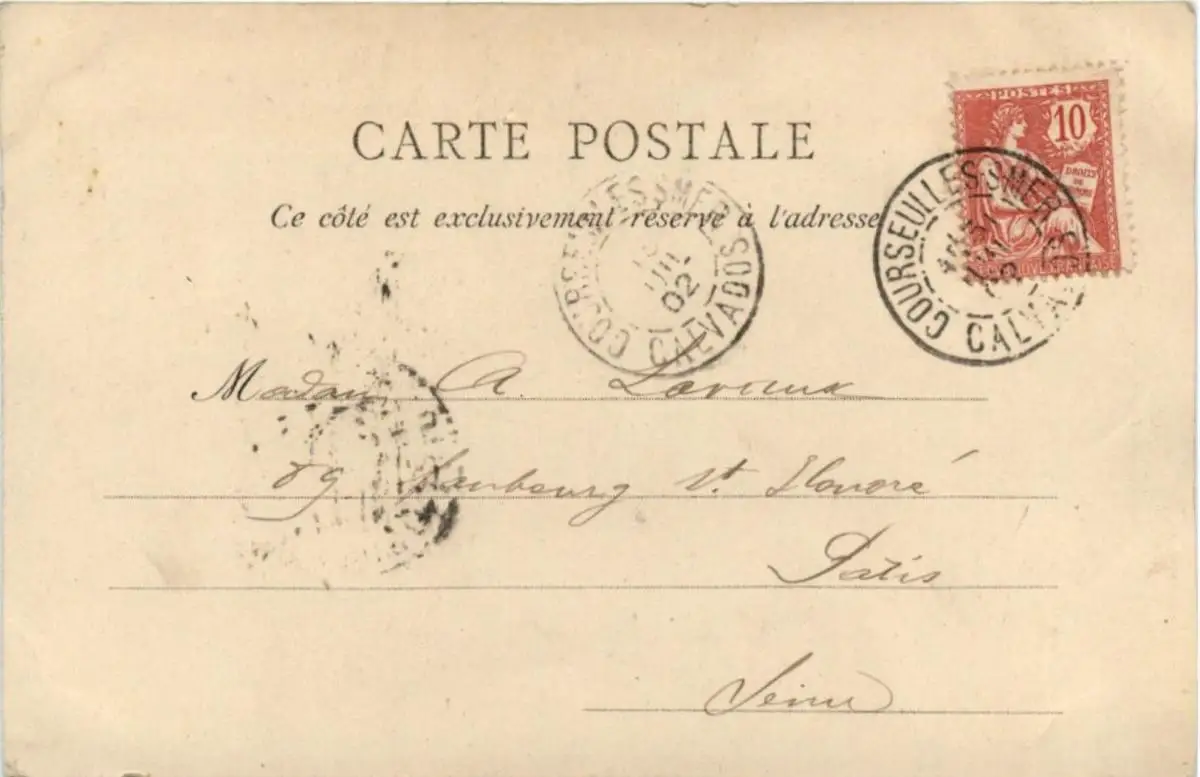 CARTE POSTALE
Ce côté est exclusivement réservé à l'adresse
POSTES
10
DROITS DE L'HOMME
COURSEULLES S MER
CALVADOS
COURSEULLES S MER
JUIL
02
CALVADOS
Madame A.
89 Faubourg St Honoré
Paris
Seine